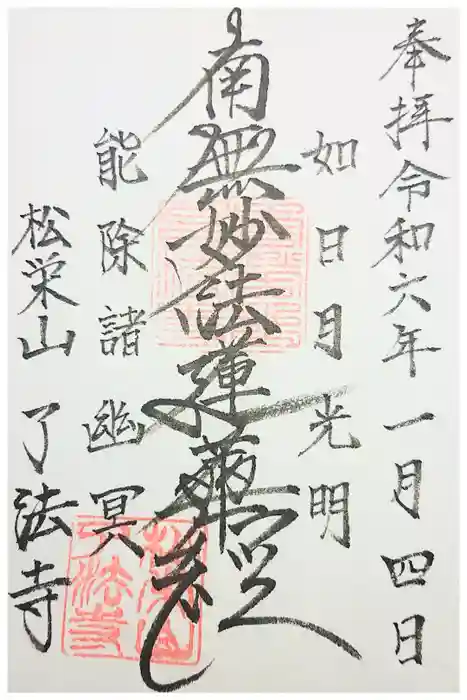 奉拝令和六年一月四日
如日月光明
南無妙法蓮華経
能除諸幽冥
松栄山 了法寺
松栄山
了法寺